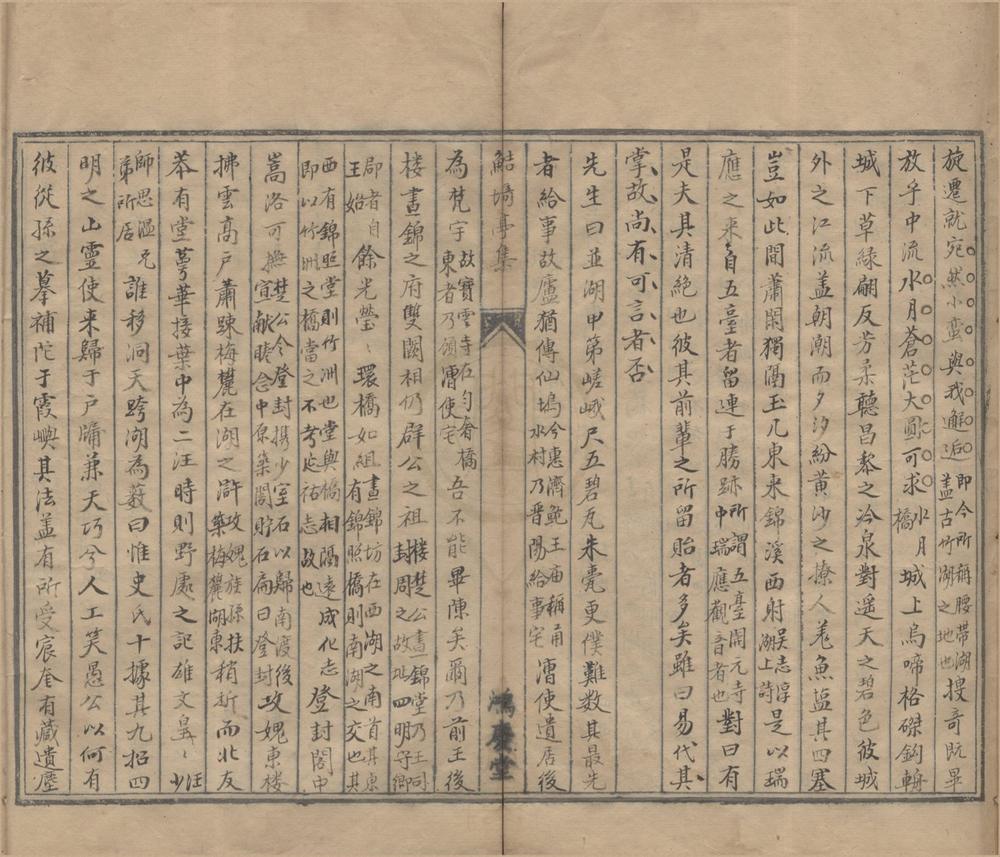 旋遷就宛然小蠻與我邂逅即今所稱腰帶湖蓋古竹湖之地也搜奇既畢
放乎中流水月蒼茫大圓可求水月橋城上烏啼格磔鉤輈
城下草綠葹反芳柔聽昌黎之冷泉對遥天之碧色彼城
外之江流盖朝潮而夕汐紛黄沙之撩人羗魚塩其四塞
豈如此間蕭閒獨隔玉几東来錦溪西射吴志淳湖上詩是以瑞
應之来自五臺者留連于勝跡所謂五臺開元寺中瑞應觀音者也對曰有
是夫其清絶也彼其前輩之所留貽者多矣雖曰易代其
掌故尚有可言者否
先生曰並湖甲第嵯峨尺五碧瓦朱甍更僕難数其最先
者給事故廬猶傳仙塢今惠濟鮑王庙稱甬水村乃晋陽給事宅漕使遺居後
鮚埼亭集
鴻慶堂
為梵宇故寳雲寺在勻奢橋東者乃領漕使宅吾不能畢陳矣爾乃前王後
楼晝錦之府雙闕相仍群公之祖楼楚公晝錦堂乃王同封周之故址四明守鄉
郡者自王始餘光瑩〻環橋如組晝錦坊在西湖之南首其東有錦照橋則南湖之交也其
西有錦照堂則竹洲也堂與橋相隔遠成化志即以竹洲之橋當之不考延祐志故也登封閣中
嵩洛可撫楚公令登封携少室石以歸南渡後宣献瞻念中保築閣貯石扁曰登封攻媿東楼
拂雲高户蕭踈梅麓在湖之滸攻媿族孫扶築梅麓湖東稍近而北友
恭有堂萼華接葉中為二汪時則野處之記雄文㬅〻汪少
師思温兄弟所居誰移洞天跨湖為薮曰惟史氏十據其九招四
明之山靈使来歸于户牖兼天巧兮人工笑愚公以何有
彼從孫之摹補陀于霞嶼其法盖有所受宸奎有藏遺壓